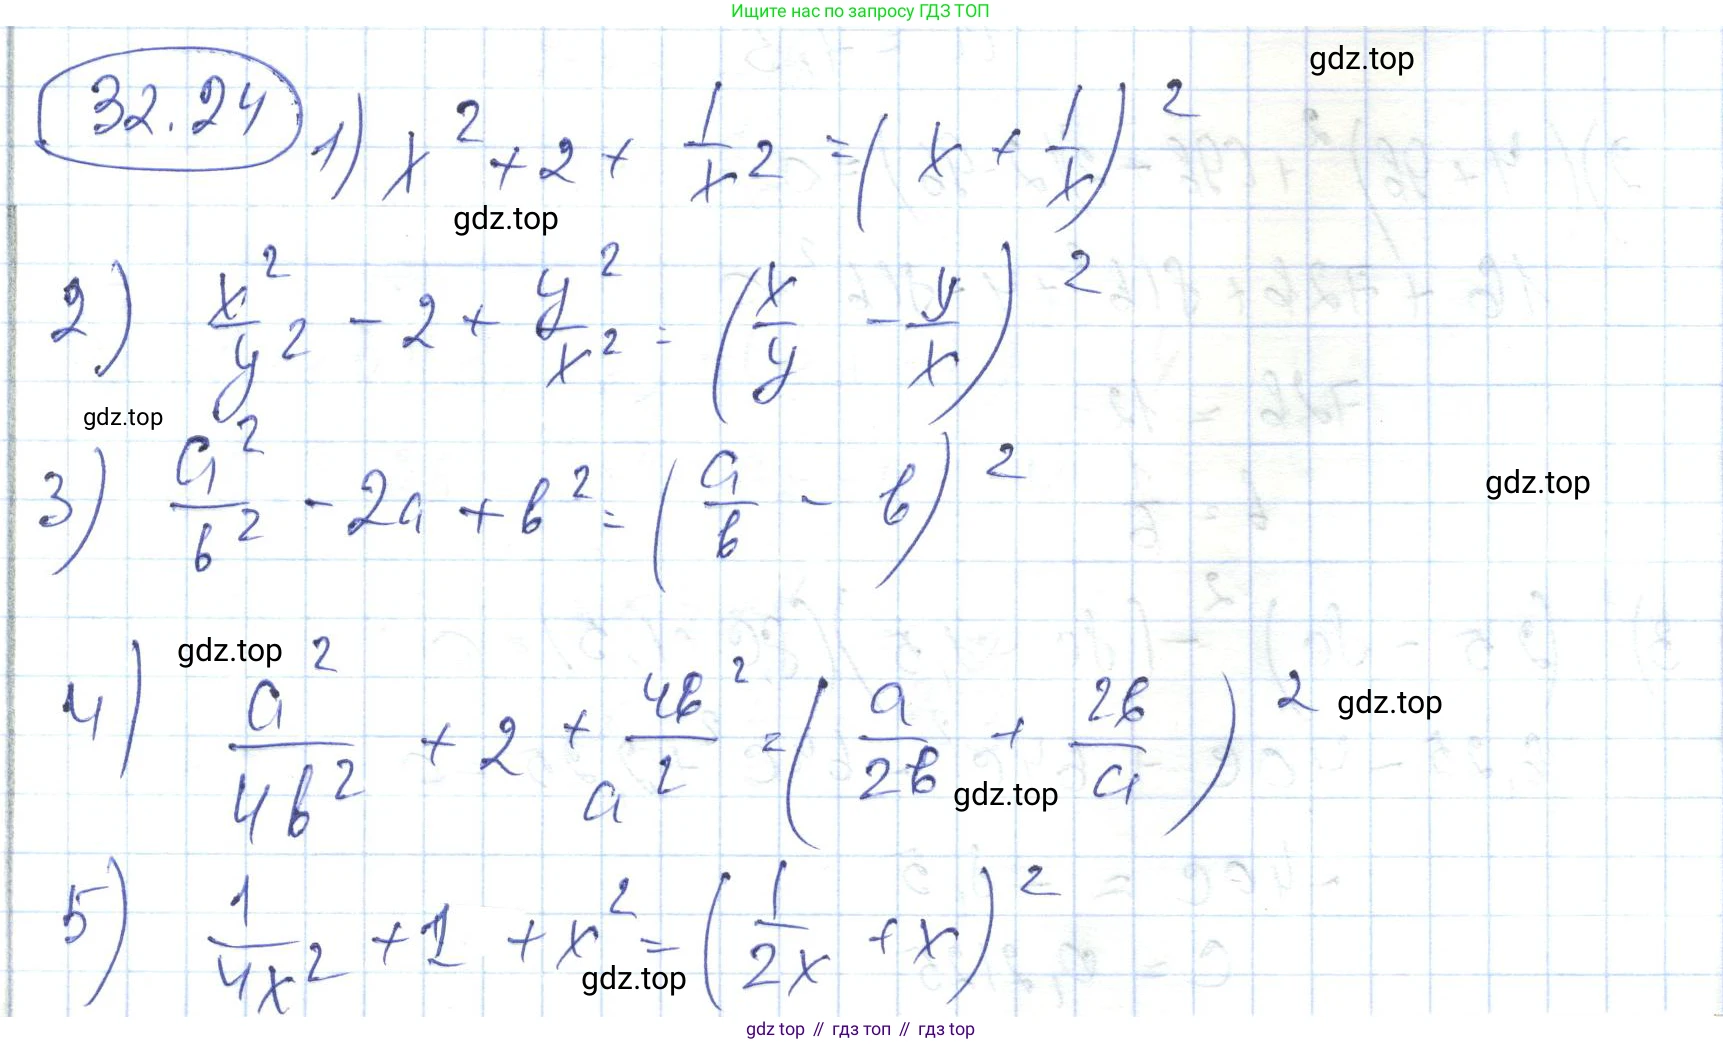 Ищите нас по запросу ГДЗ ТОП
gdz.top
32.24 1) x² + 2 + 1/x² = (x + 1/x)²
gdz.top
2) x²/y² - 2 + y²/x² = (x/y - y/x)²
gdz.top
3) a²/b² - 2a + b² = (a/b - b)²
gdz.top
gdz.top
4) a²/4b² + 2 + 4b²/a² = (a/2b + 2b/a)²
gdz.top
gdz.top
5) 1/4x² + 1 + x² = (1/2x + x)²
gdz.top
gdz top // гдз топ // гдз top